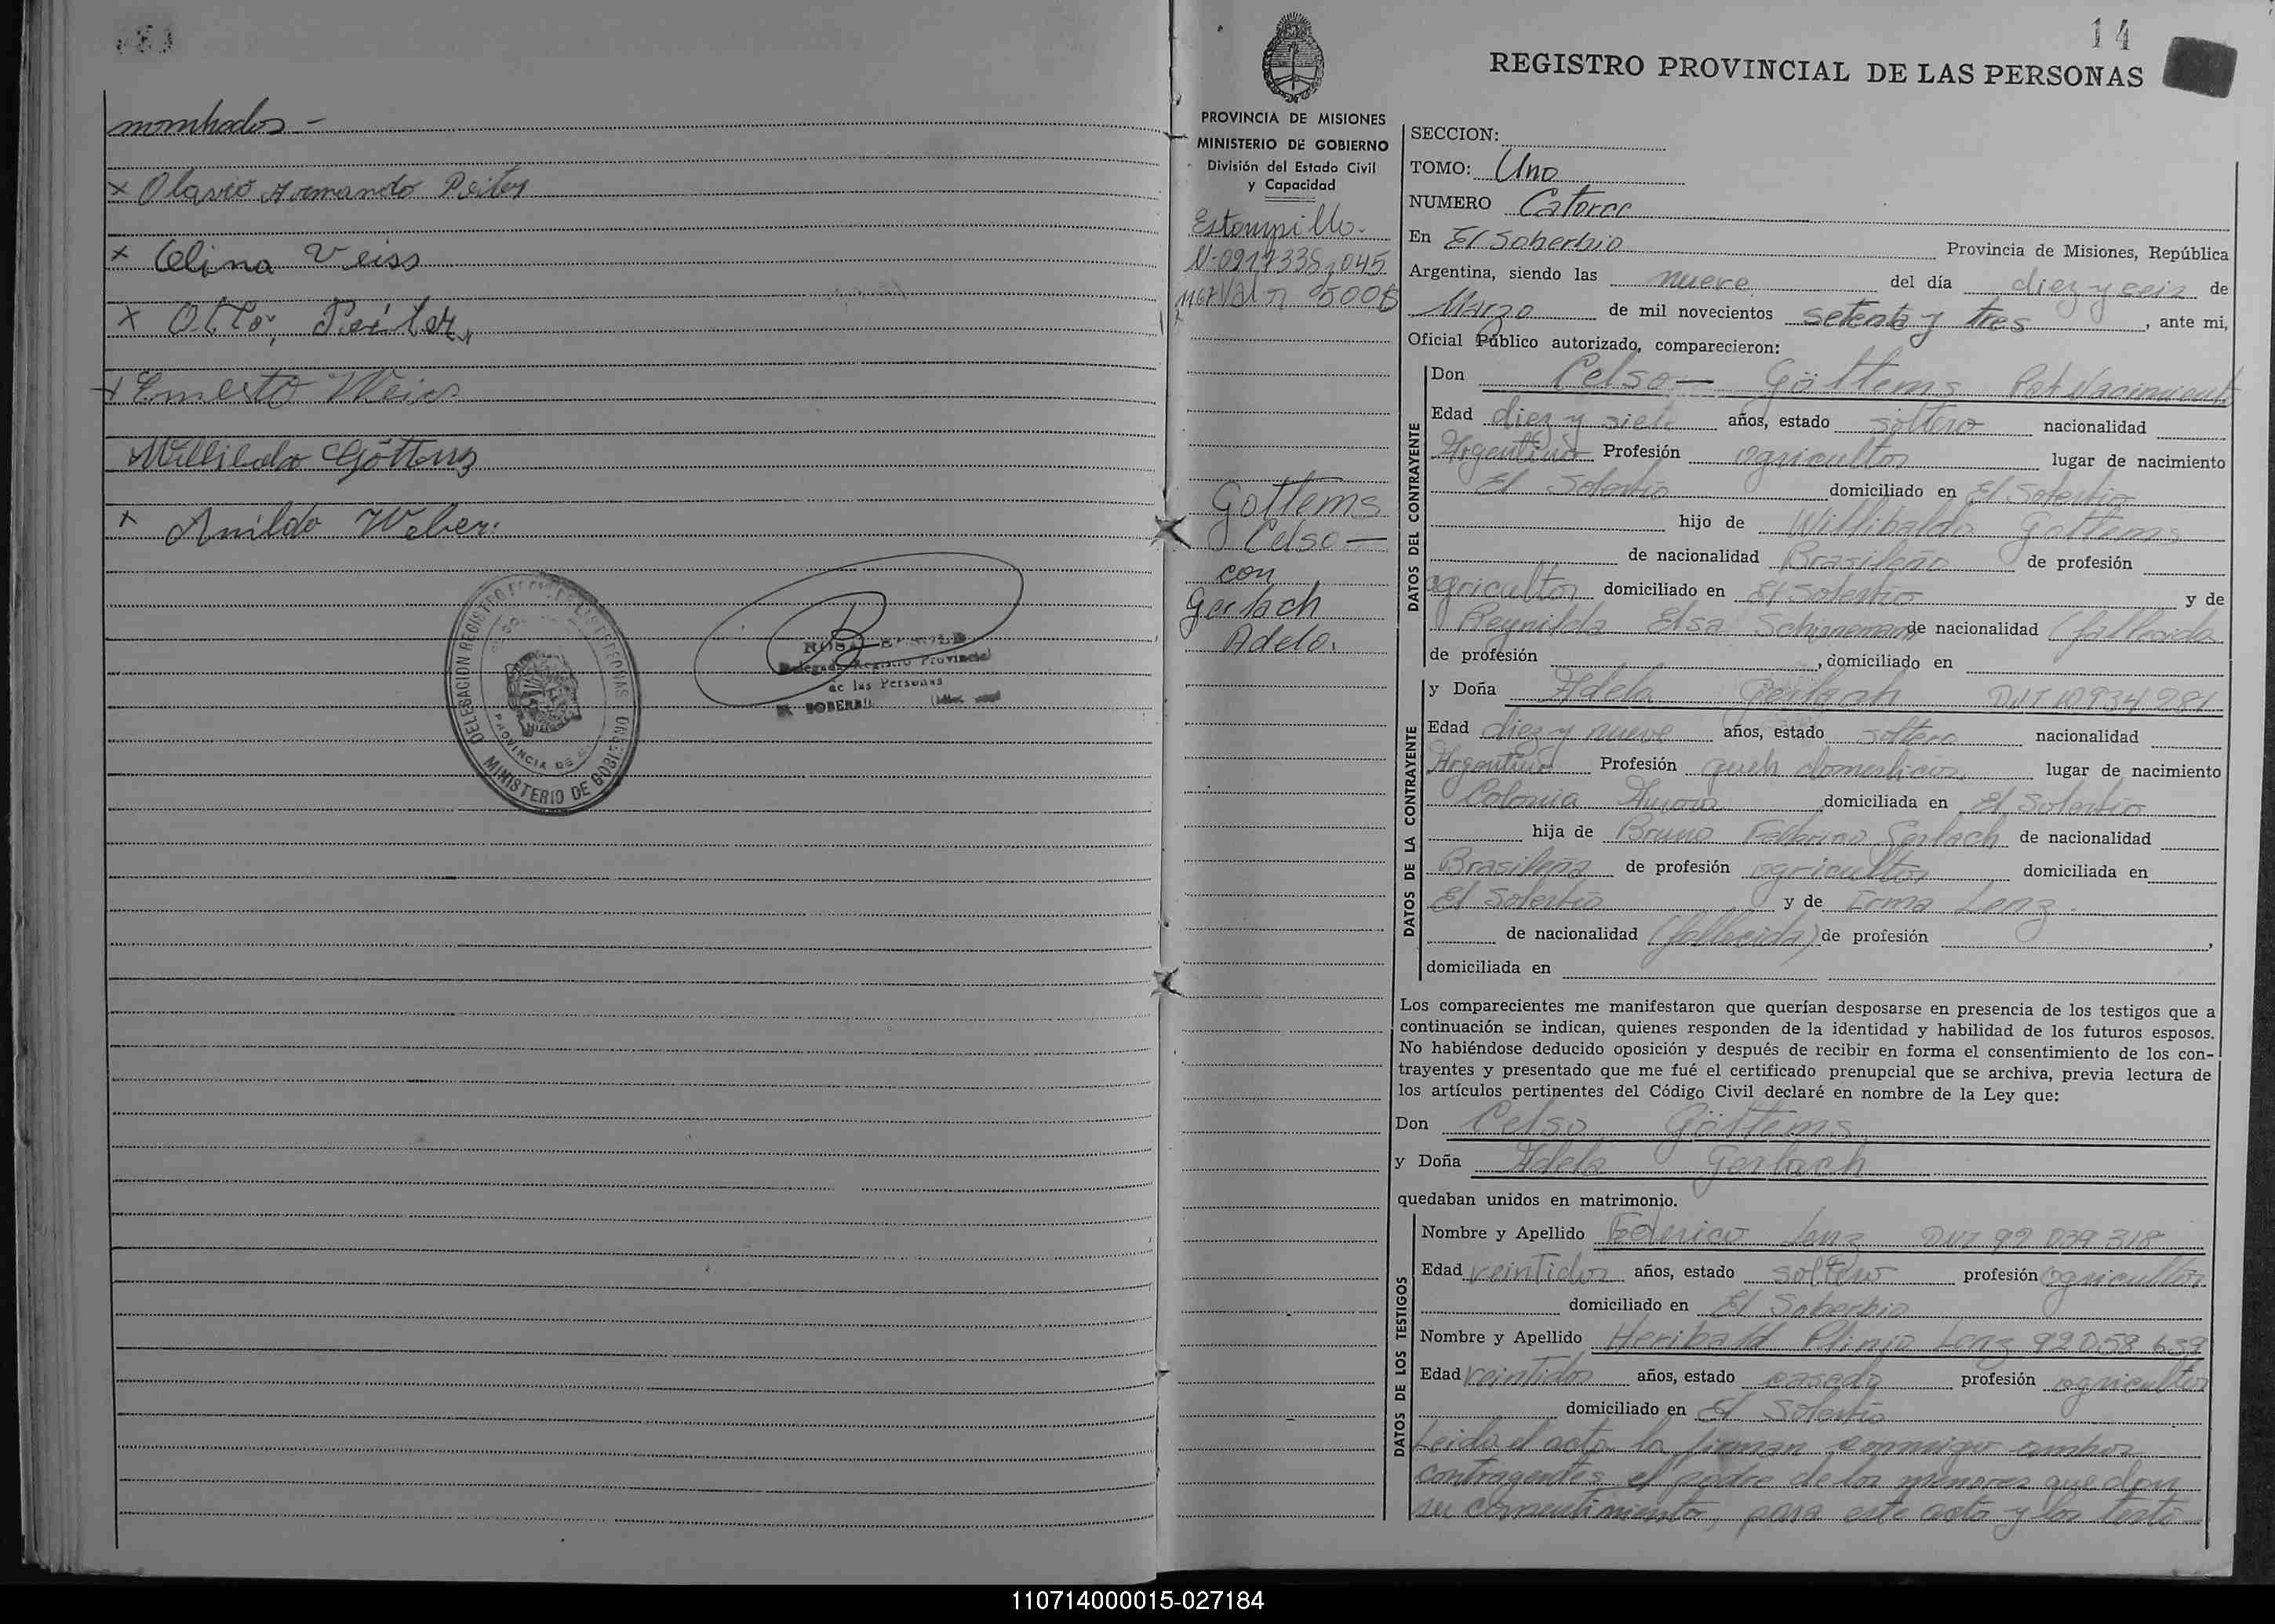 nombrados -
x Olavio Armando Peiter
x Celina Veiss
x Otto, Peiter
x Ernesto Weiss
Willibaldo Göttems
x Anildo Weber.
DELEGACION REGISTRO PROVINCIAL DE LAS PERSONAS
MINISTERIO DE GOBIERNO
PROVINCIA DE
Delegada Registro Provincial
de las Personas
EL SOBERBIO
14
REGISTRO PROVINCIAL DE LAS PERSONAS
PROVINCIA DE MISIONES
MINISTERIO DE GOBIERNO
División del Estado Civil
y Capacidad
Estampilla
Gottems
Celso —
con
Gerlach
Adela.
SECCION:
TOMO: Uno
NUMERO Catorce
En El Soberbio Provincia de Misiones, República
Argentina, siendo las nueve del día diez y seis de
Marzo de mil novecientos setenta y tres, ante mi,
Oficial Público autorizado, comparecieron:
DATOS DEL CONTRAYENTE
Don Celso — Göttems Part Nacimiento
Edad diez y siete años, estado soltero nacionalidad
Argentino Profesión agricultor lugar de nacimiento
El Soberbio domiciliado en El Soberbio
hijo de Willibaldo Gottems
de nacionalidad Brasileño de profesión
agricultor domiciliado en El Soberbio y de
Reynilda Elsa Schinemann de nacionalidad (fallecida
de profesión , domiciliado en
DATOS DE LA CONTRAYENTE
y Doña Adela Gerlach DNI 10934281
Edad diez y nueve años, estado soltera nacionalidad
Argentina Profesión queh domesticos lugar de nacimiento
Colonia Aurora domiciliada en El Soberbio
hija de Bruno Gerlach de nacionalidad
Brasileña de profesión agricultor domiciliada en
El Soberbio y de Erma Lenz.
de nacionalidad (fallecida) de profesión ,
domiciliada en
Los comparecientes me manifestaron que querían desposarse en presencia de los testigos que a
continuación se indican, quienes responden de la identidad y habilidad de los futuros esposos.
No habiéndose deducido oposición y después de recibir en forma el consentimiento de los con-
trayentes y presentado que me fué el certificado prenupcial que se archiva, previa lectura de
los artículos pertinentes del Código Civil declaré en nombre de la Ley que:
Don Celso Göttems
y Doña Adela Gerlach
quedaban unidos en matrimonio.
DATOS DE LOS TESTIGOS
Nombre y Apellido Federico Lenz DNI 92 039 318
Edad veintidos años, estado soltero profesión agricultor
domiciliado en El Soberbio
Nombre y Apellido Heribald Plinio Lenz 92 058 639
Edad veintidos años, estado casado profesión agricultor
domiciliado en El Soberbio
Leida el acta la firman conmigo ambos
contrayentes el padre de los menores que dan
su consentimiento, para este acto y los testi-
110714000015-027184